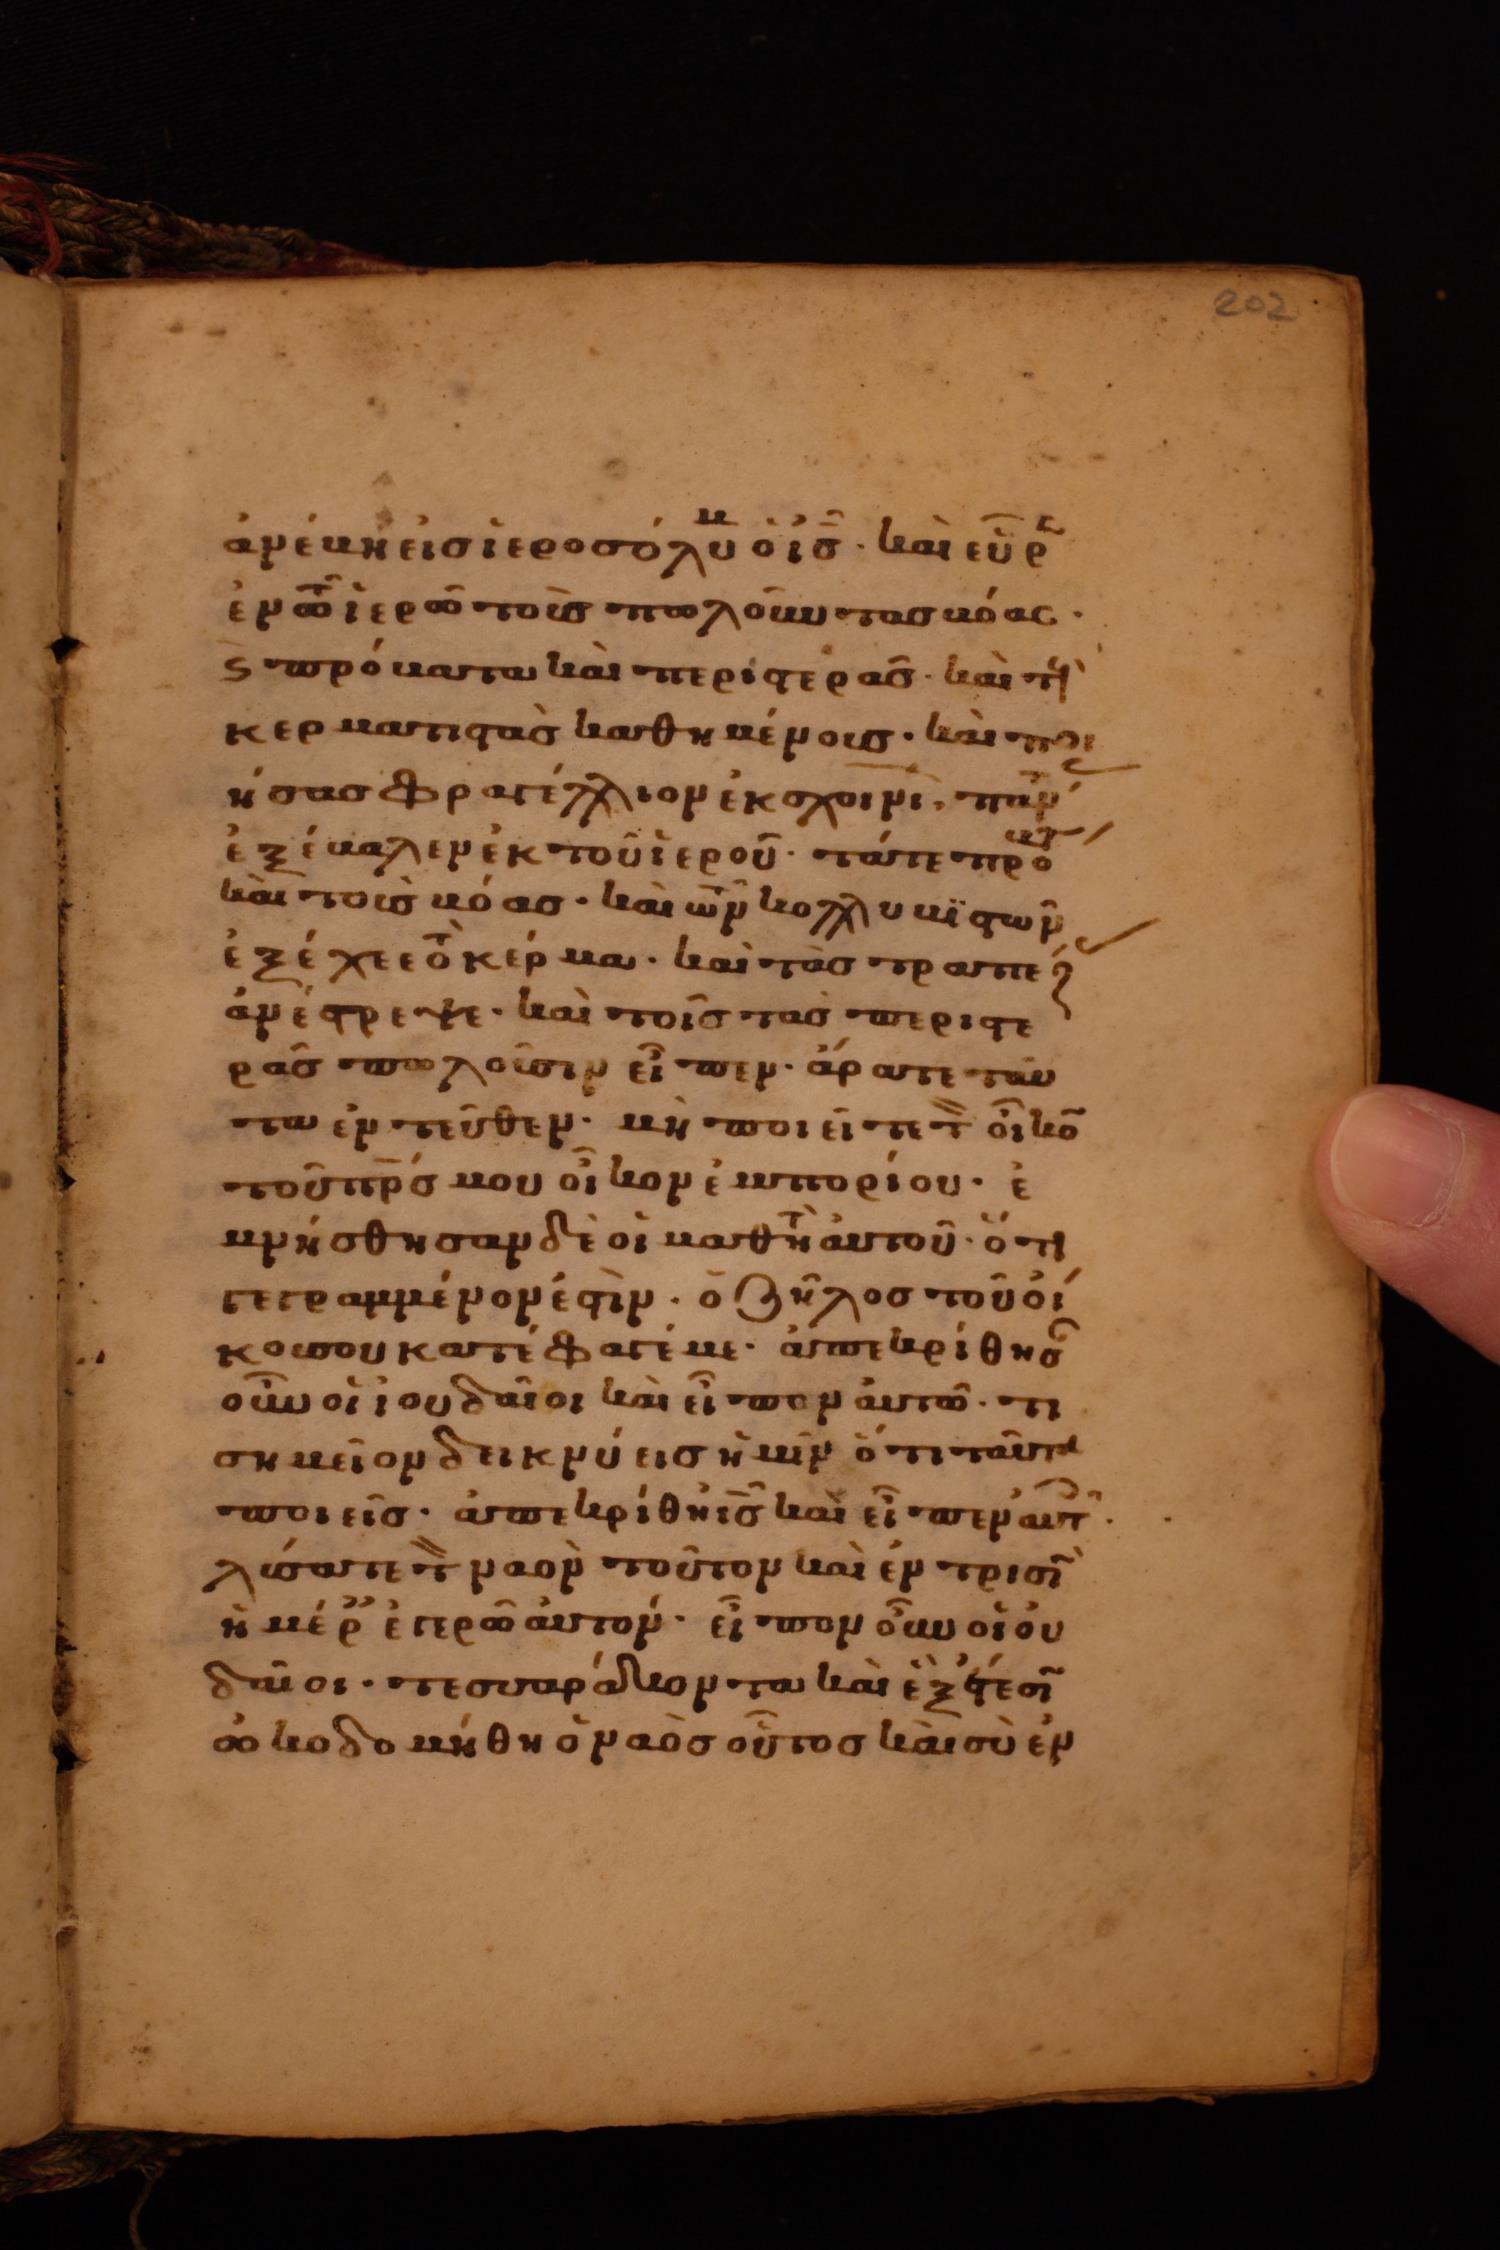 202
ἀνέβη εἰσ ἱεροσόλυ^μ ὁ ι̅ς̅· καὶ εὗρ^ε
ἐν τῶ ἱερῶ τοὺς πωλοῦντασ βόας·
ϛ πρόβατα καὶ περιστεράσ· καὶ τ^οὺ
κερματιστὰσ καθημένους· καὶ ποι
ήσασ φραγέλλιον ἐκ σχοινί, πάν
ἐξέβαλεν ἐκ τοῦ ἱεροῦ· τά τε πρό^βατ
καὶ τοὺσ βόασ· καὶ τῶν κολλυβϊστῶν
ἐξέχεε τὸ κέρμα· καὶ τὰσ τραπέζ
ἀνέστρεψε· καὶ τοῖσ τὰσ περιστε
ρὰσ πωλοῦσιν εἶπεν· ἄρατε ταῦ
τα ἐντεῦθεν· μὴ ποιεῖτε τ̀ οἶκο̅
τοῦ π̅ρ̅σ μου οἶκον ἐμπορίου· ἐ
μνήσθησαν δὲ οἱ μαθητ αὐτοῦ· ὅτι
γεγραμμένον ἐστὶν· ὁ ζῆλοσ τοῦ οἴ
κου σου κατέφαγέ με· ἀπεκρίθησ
οὖν οἱ ἰουδαῖοι καὶ εἶπον αὐτῶ· τι
σημεῖον δεικνύεισ ἡμῖν ὅτι ταῦτα
ποιεῖσ· ἀπεκρίθη ι̅ς̅ καὶ εἶπεν αὐτ·
λύσατε τ̀ ναὸν τοῦτον καὶ ἐν τρισὶ
ἡμέρ ἐγερῶ αὐτόν· εἶπον οὖν οἱ ἰου
δαῖοι· τεσσαράκοντα καὶ ἓξ ἔτεσι
ὠκοδομήθη ὁ ναὸσ οὗτοσ καὶ σὺ ἐν